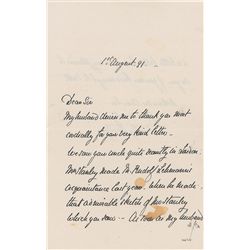 1st August. 91.
Dear Sir
My husband desires me to thank you most
cordially for your very kind letter.
We saw your uncle quite recently in London.
Mr Stanley made Mr Rudolf Lehmann's
acquaintance last year. When he made
that admirable sketch of Mr Stanley
which you saw — As soon as my husband